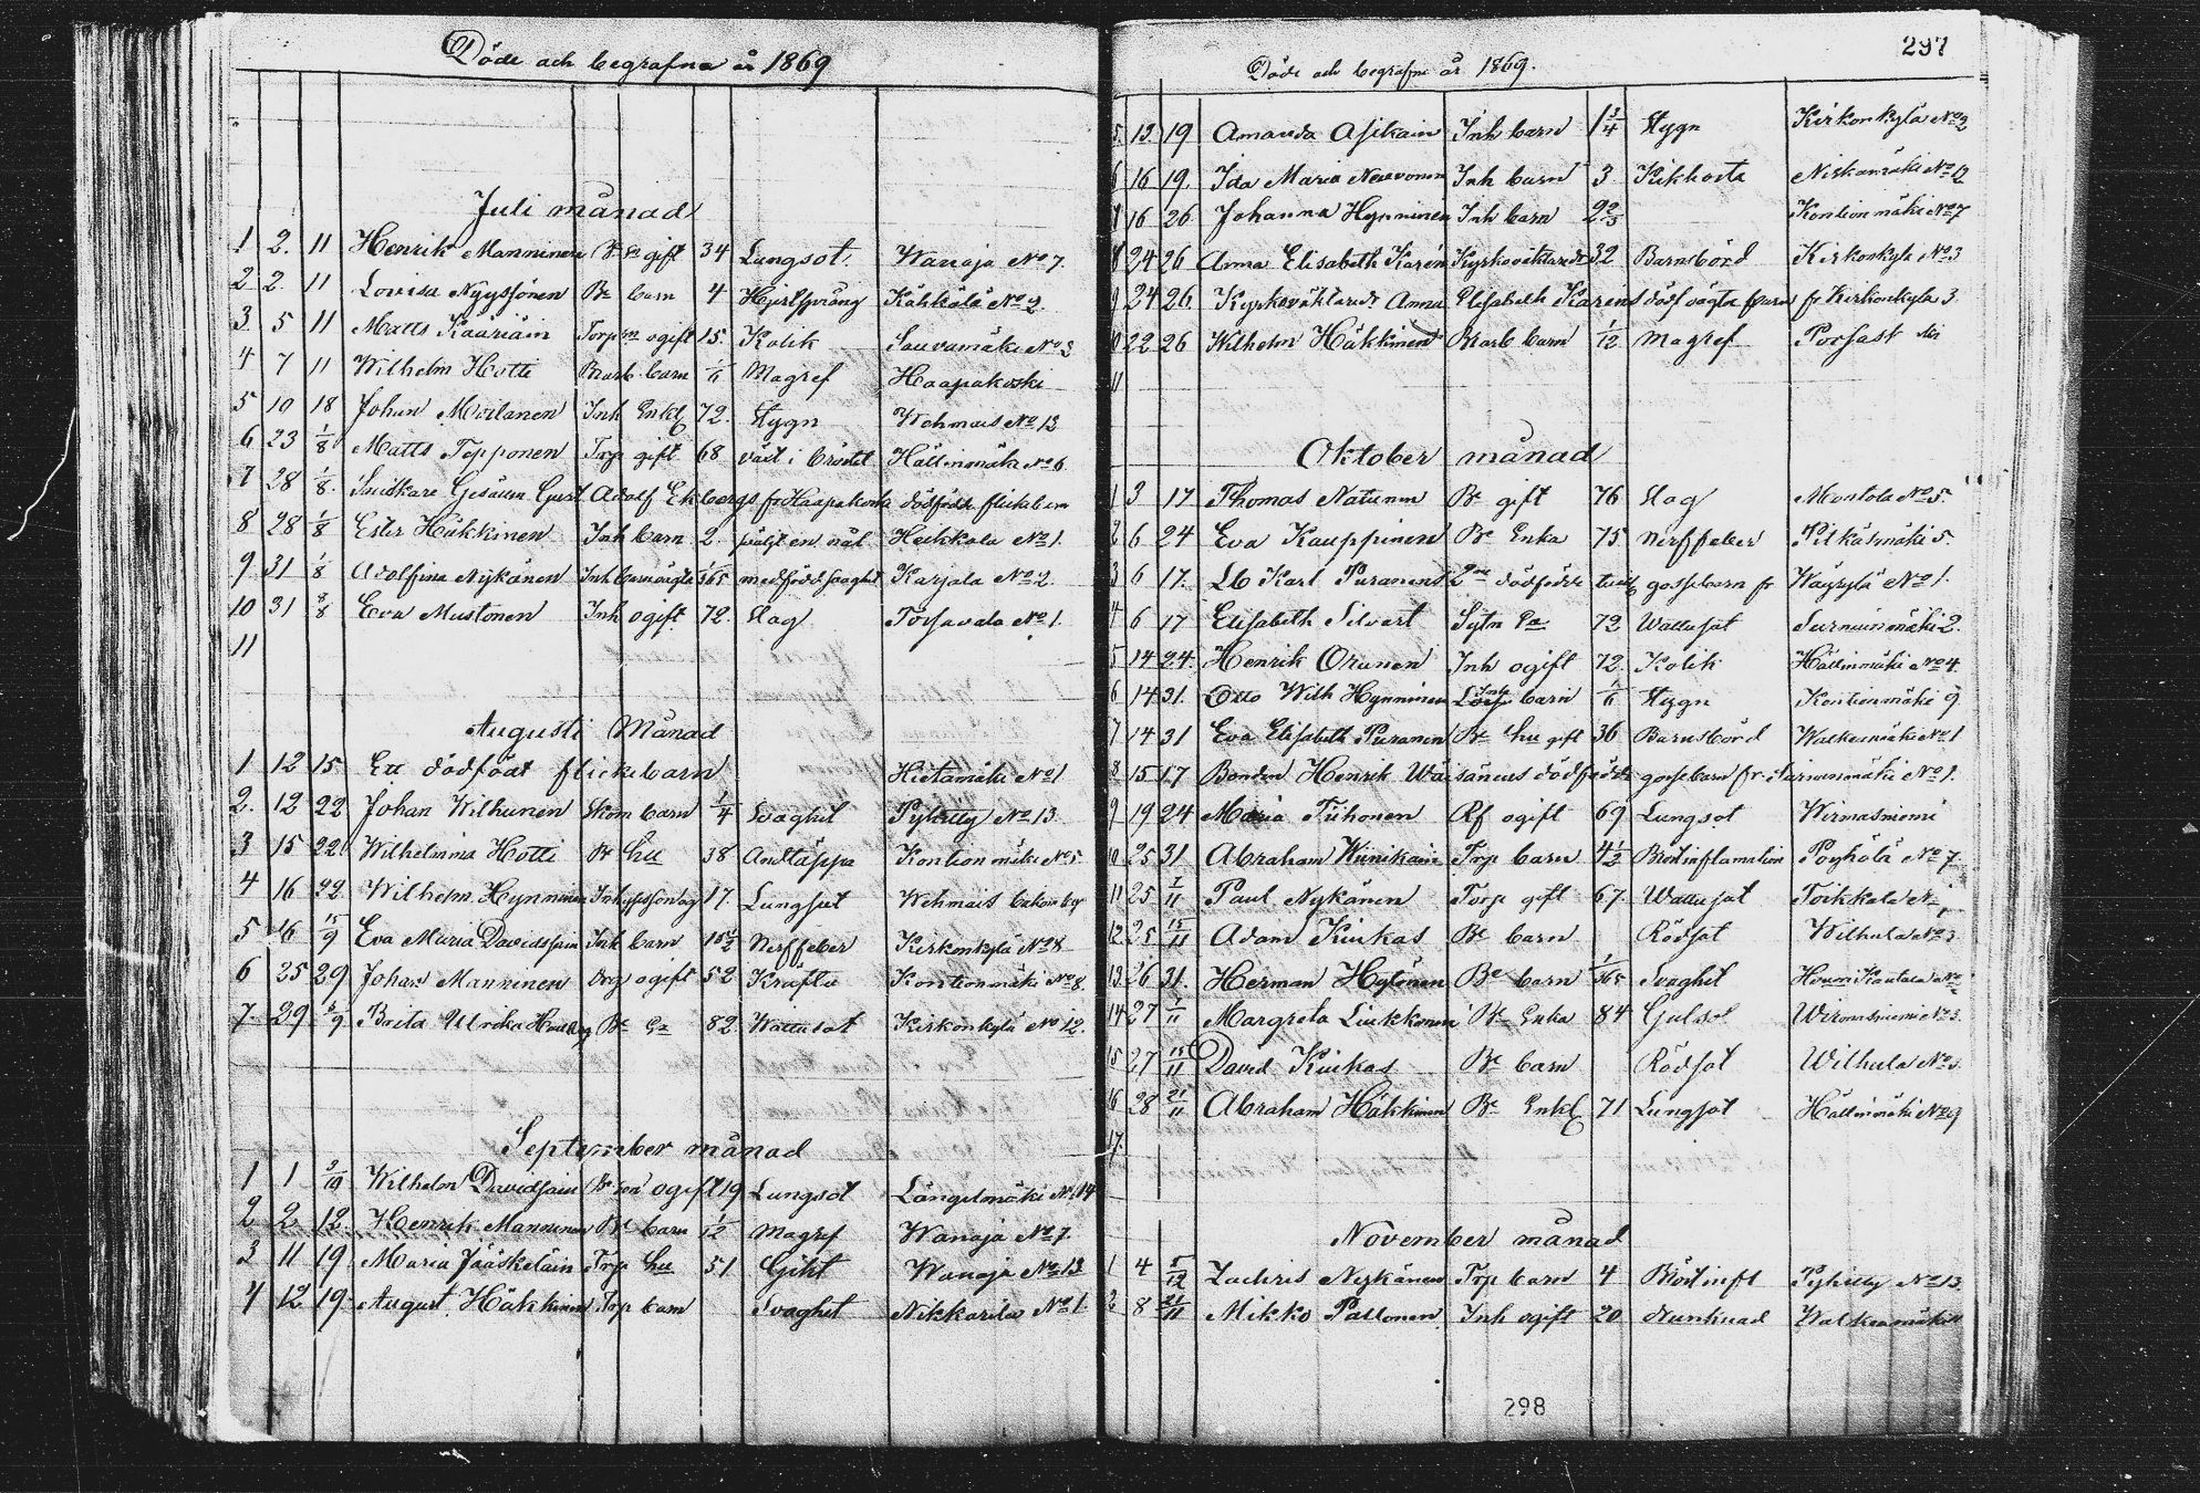 Döde och begrafna år 1869
Juli månad
1 2. 11 Henrik Manninen gift 34 Lungsot. Wanaja No 7.
2 2. 11 Lovisa Nyyssönen Be barn 4 Hjertsprång Kähkölä No 2.
3 5 11 Matts Kääriäin ogift 15. Kolik Sauvamäki No 3
4 7 11 Wilhelm Hotti barn Magref Haapakoski
5 10 18 Johan Moilanen Inh Enkl 72. Stygn Wehmais No 13
6 23 1/8 Matts Tepponen Torp gift 68 värk i bröstet Hällinmäki No 6
7 28 1/8. Gesällen Gust. Adolf Ekbergs fr Haapakoski dödfödde flickebarn
8 28 1/8 Ester Häkkinen Inh barn 2. en nål Heikkola No 1.
9 31 1/8 Adolfina Nykänen Inh barn 1/365 medfödd svaghet Karjala No 2.
10 31 8/8 Eva Mustonen Inh ogift 72. Slag Torsavala No 1.
11
Augusti Månad
1 12 15 Ett dödfödt flickebarn Hietamäki No 1
2. 12 22 Johan Wilhunen Skom barn 1/4 Svaghet Pyhitty No 13
3 15 22 Wilhelmina Hotti Be hu 38 Andtäppa Kontionmäki No 5.
4 16 22 Wilhelm Hynninen 17. Lungsot Wehmais
5 16 15/9 Eva Maria Davidsain Inh barn 15 1/2 Nerffeber Kirkonkylä No 8
6 25 29 Johan Manninen ogift 52 Kräfta Kontionmäki No 8.
7. 29 5/9 Brita Ulrika Be Ea 82. Wattusot Kirkonkylä No 12.
September månad
1 1 3/10 Wilhelm Davidsain Be son ogift 19 Lungsot Längelmäki No 14
2 2 12. Henrik Manninen Be barn 1/12 Magref Wanaja No 7.
3 11 19 Maria Jääskeläin Torp hu 51 Gikt Wanaja No 13
4 12 19 August Häkkinen Torp barn Svaghet Nikkarila No 1.
297
Döde och begrafne år 1869.
5. 13. 19 Amanda Asikain Inh barn 1 3/4 Stygn Kirkonkylä No 2
6 16 19. Ida Maria Neuvonen Inh barn 3 Kikhosta Niskamäki No 12
7 16 26 Johanna Hynninen Inh barn 2 2/3 Kontionmäki No 7
8 24 26 Anna Elisabeth Karén 32 Barnsbörd Kirkonkylä No 3
9 24 26. Anna Elisabeth Karens fr Kirkonkylä 3.
10 22 26 Wilhelm Häkkinen barn 1/12 Magref
11
Oktober månad
1 3 17 Thomas Natunen Be gift 76 Slag Montola No 5.
2 6 24 Eva Kauppinen Be Enka 75 Nerffeber Pitkäsmäki 5.
3 6 17. Karl Puranens 2ne dödfödde gossebarn fr Wäyrylä No 1.
4 6 17 Elisabeth Silvast Sytn Ea 72 Wattusot Surnuinmäki 2.
5 14 24. Henrik Orunen Inh ogift 72. Kolik Hällinmäki No 4
6 14 31. Otto Wilh Hynninen Inh barn Stygn Kontionmäki 9
7 14 31 Eva Elisabeth Puranen Be hu gift 36 Barnsbörd Walkeamäki No 1
8 15 17 Bonden Henrik Wäisänens dödfödde gossebarn fr Surnuinmäki No 1.
9 19 24 Maria Tiihonen ogift 69 Lungsot Wirmasniemi
10 25 31 Abraham Wiinikain Torp barn 4 1/2 Bröstinflamation Pöyhölä No 7
11 25 7/11 Paul Nykänen Torp gift 67. Wattusot Toikkala No
12 25 15/11 Adam Kiukas Be barn Rödsot Wilhula No 3
13 26 31. Herman Hytönen Be barn 1/365 Svaghet
14 27 7/11 Margreta Liukkonen Be Enka 84 Gulsot Wirmasniemi No 3.
15 27 15/11 David Kiukas Be barn Rödsot Wilhula No 3.
16 28 21/11 Abraham Häkkinen Be Enkl 71 Lungsot Hällinmäki No 9
17.
November månad
1 4 5/12 Zachris Nykänen Torp barn 4 Bröstinfl Pyhitty No 13.
2 8 21/11 Mikko Pallonen Inh ogift 20 Drunknad Walkeamäki
298